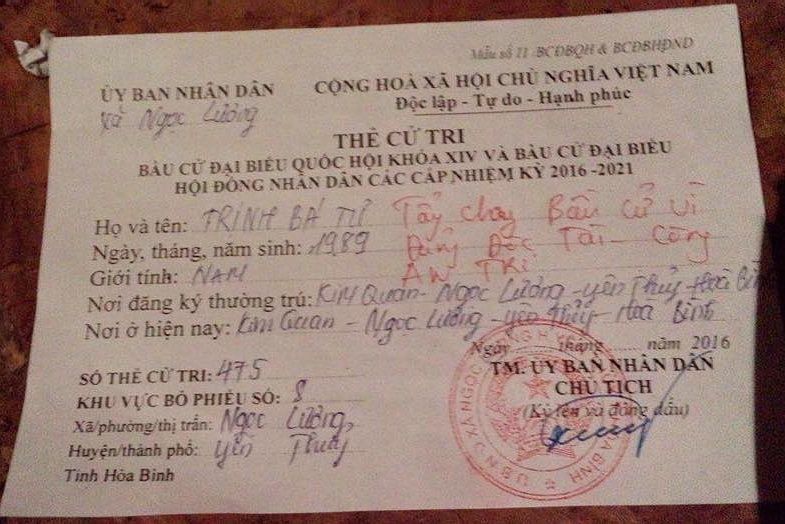 Mẫu số 11/BCĐBQH & BCĐBHĐND
ỦY BAN NHÂN DÂN
Xã Ngọc Lương
CỘNG HOÀ XÃ HỘI CHỦ NGHĨA VIỆT NAM
Độc lập - Tự do - Hạnh phúc
THẺ CỬ TRI
BẦU CỬ ĐẠI BIỂU QUỐC HỘI KHÓA XIV VÀ BẦU CỬ ĐẠI BIỂU
HỘI ĐỒNG NHÂN DÂN CÁC CẤP NHIỆM KỲ 2016 -2021
Họ và tên: TRỊNH BÁ TƯ Tẩy chay Bầu cử vì
Ngày, tháng, năm sinh: 1989 Đảng Độc Tài Cộng
Giới tính: NAM
Nơi đăng ký thường trú: Kim Quan - Ngọc Lương - Yên Thủy - Hoà Bình
Nơi ở hiện nay: Kim Quan - Ngọc Lương - yên Thủy - Hoà Bình
Ngày tháng năm 2016
TM. ỦY BAN NHÂN DÂN
CHỦ TỊCH
(Ký tên và đóng dấu)
SỐ THẺ CỬ TRI: 475
KHU VỰC BỎ PHIẾU SỐ: 8
Xã/phường/thị trấn: Ngọc Lương,
Huyện/thành phố: yên Thủy
Tỉnh Hòa Bình